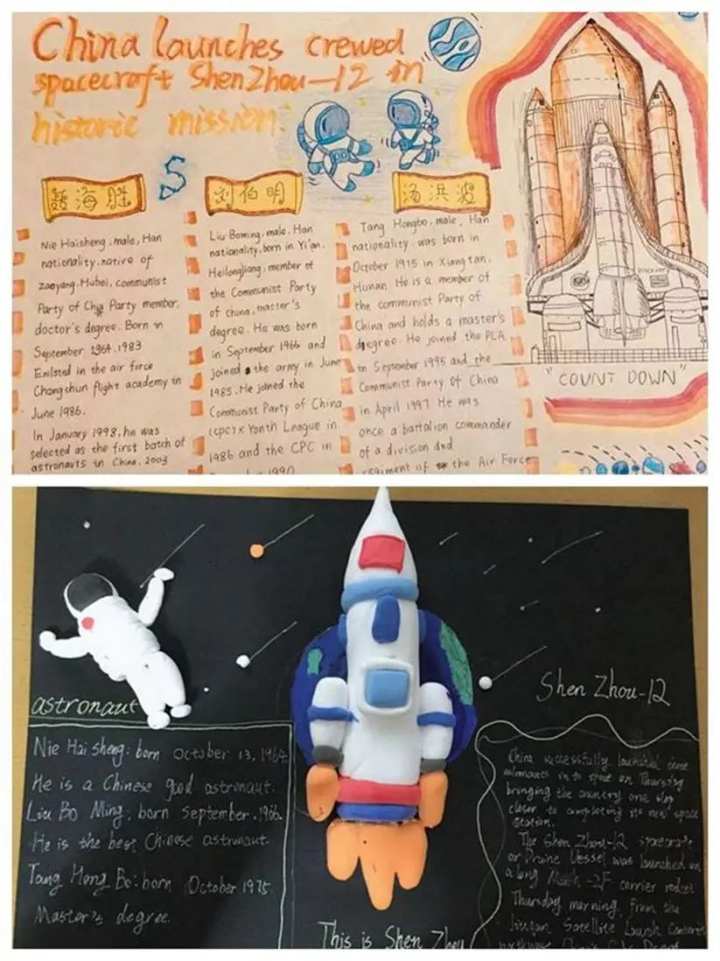 China launches crewed
spacecraft ShenZhou-12 in
historic mission.
S
聂海胜
刘伯明
汤洪波
Nie Haisheng, male, Han
nationality, native of
Zaoyang, Hubei, communist
Party of Party member,
doctor's degree. Born in
September 1964. 1983
Enlisted in the air force
Changchun flight academy in
June 1986.
In January 1998, he was
selected as the first batch of
astronauts in China. 2003
Liu Boming, male, Han
nationality, born in Yi'an,
Heilongjiang, member of
the Communist Party
of china, master's
degree. He was born
in September 1966 and
joined the army in June
1985. He joined the
Communist Party of China
Youth League in
1986 and the CPC in
1990
Tang Hongbo, male, Han
nationality, was born in
October 1975 in Xiangtan,
Hunan. He is a member of
the communist Party of
China and holds a master's
degree. He joined the PLA
in September 1995 and the
Communist Party of China
in April 1997 He was
once a battalion commander
of a division and
regiment of the Air Force
"COUNT DOWN"
astronaut
Nie Hai sheng: born October 13, 1964.
He is a Chinese good astronaut.
Liu Bo Ming, born September. 1966.
He is the best Chinese astronaut.
Tang Hong Bo: born October 1975.
Master's degree.
This is Shen Zhou
Shen Zhou-12
China successfully launched three
in to space on Thursday
bringing the country one step
closer to completing its new space
station.
The Shen Zhou-12 spacecraft
or Divine Vessel was launched on
a long March-2F carrier rocket
Thursday morning, from the
Jiuquan Satellite Launch